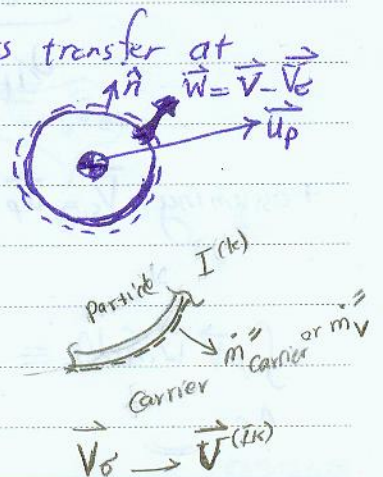 s transfer at
n̂ W⃗ = V⃗ - V⃗σ
U⃗p
I(k)
particle
ṁ″carrier or ṁ″V
Carrier
V⃗σ → V⃗(Ik)